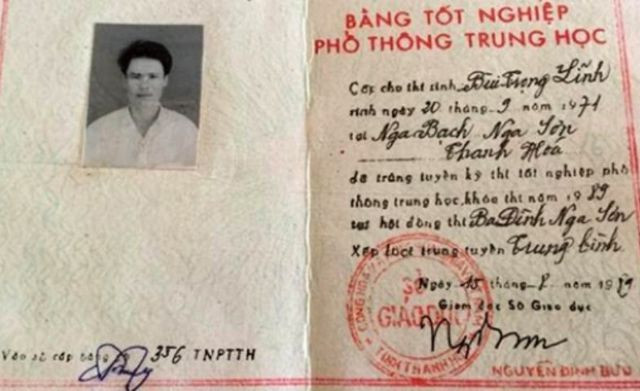 BẰNG TỐT NGHIỆP
PHỔ THÔNG TRUNG HỌC
Cấp cho thí sinh Bùi Trọng Lĩnh
sinh ngày 20 tháng 9 năm 1971
tại Nga Bạch Nga Sơn
Thanh Hóa
đã trúng tuyển kỳ thi tốt nghiệp phổ
thông trung học, khóa thi năm 1989
tại hội đồng thi Ba Đình Nga Sơn
Xếp loại trúng tuyển Trung bình
Ngày 15 tháng 8 năm 1989
Giám đốc Sở Giáo dục
SỞ
GIÁO DỤC
TỈNH THANH HÓA
NGUYỄN ĐÌNH BƯU
Vào sổ cấp bằng 356 TNPTTH